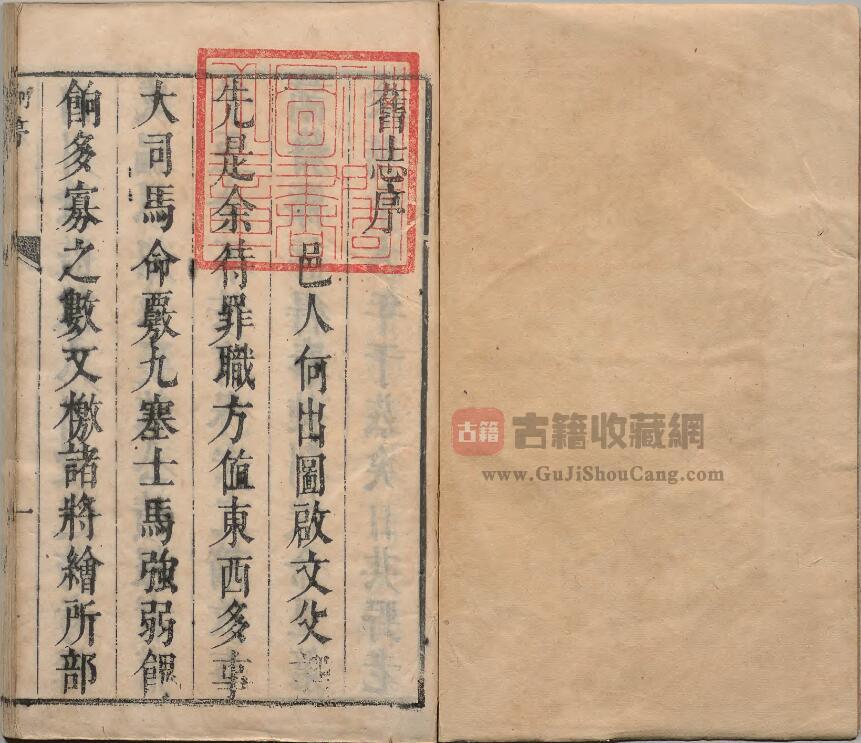 舊志序
邑人何出圖啟文父
先是余待罪職方值東西多事
大司馬命覈九塞士馬強弱餼
餉多寡之數又檄諸將繪所部
序
一
古籍
古籍收藏網
www.GuJiShouCang.com